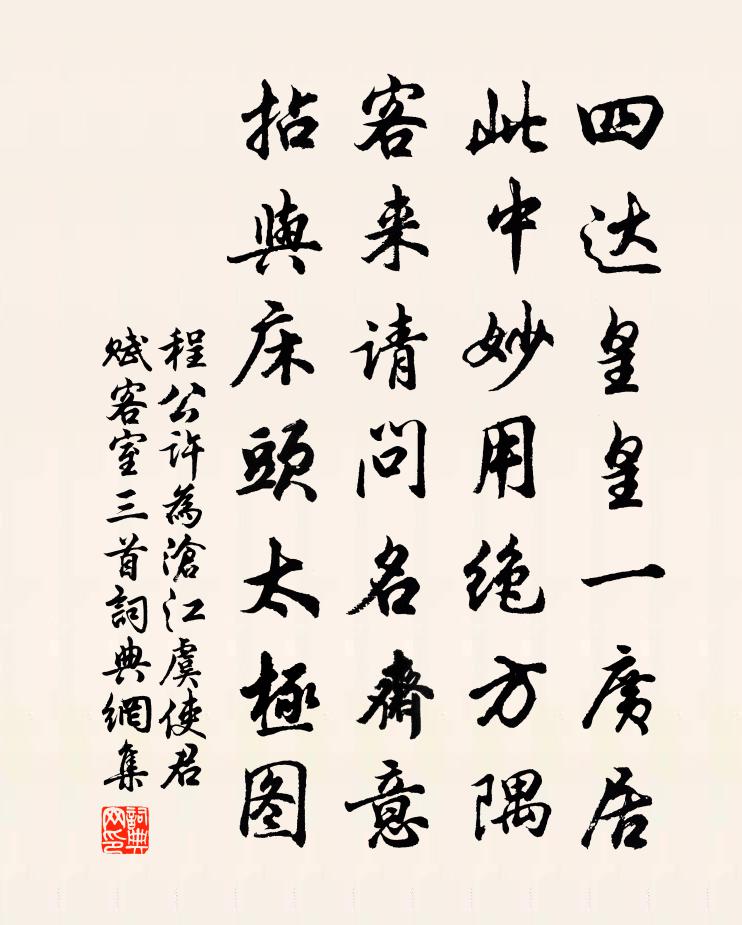 四达皇皇一广居
此中妙用绝方隅
客来请问名齋意
拈與床頭太極图
程公许為滄江虞使君
赋客室三首詞典網集
詞典网印